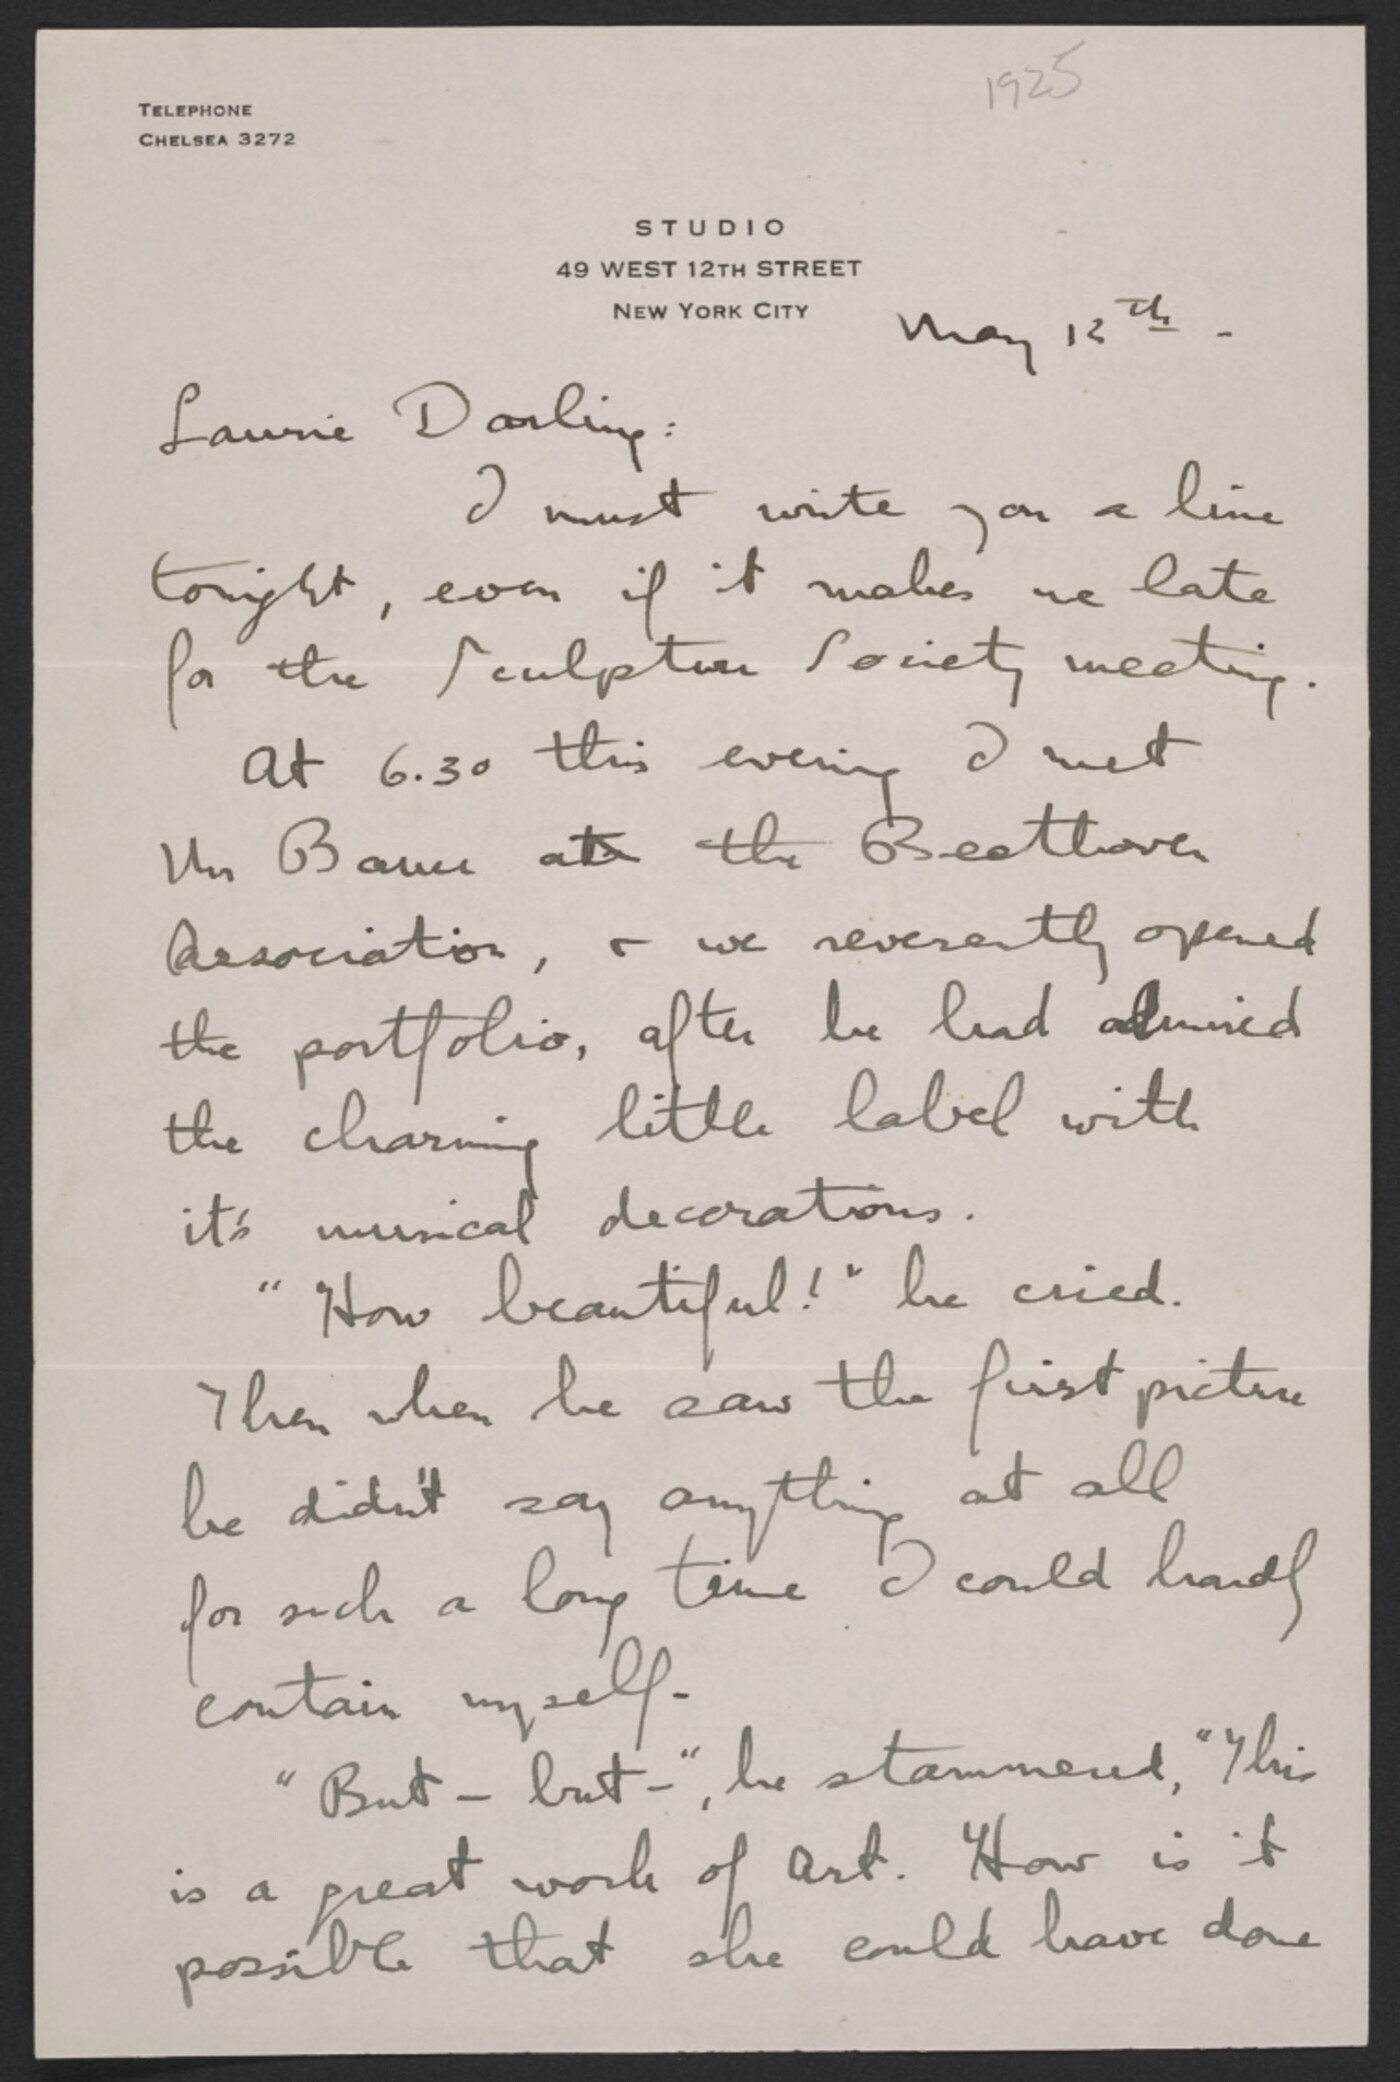 1925
TELEPHONE
CHELSEA 3272
STUDIO
49 WEST 12TH STREET
NEW YORK CITY
May 12th -
Laurie Darling:
I must write you a line
tonight, even if it makes me late
for the Sculpture Society meeting.
At 6.30 this evening I met
Mr Bauer at the Beethoven
Association, & we reverently opened
the portfolio, after he had admired
the charming little label with
it's musical decorations.
"How beautiful!" he cried.
Then when he saw the first picture
he didn't say anything at all
for such a long time I could hardly
contain myself.
"But - but -", he stammered, "This
is a great work of Art. How is it
possible that she could have done